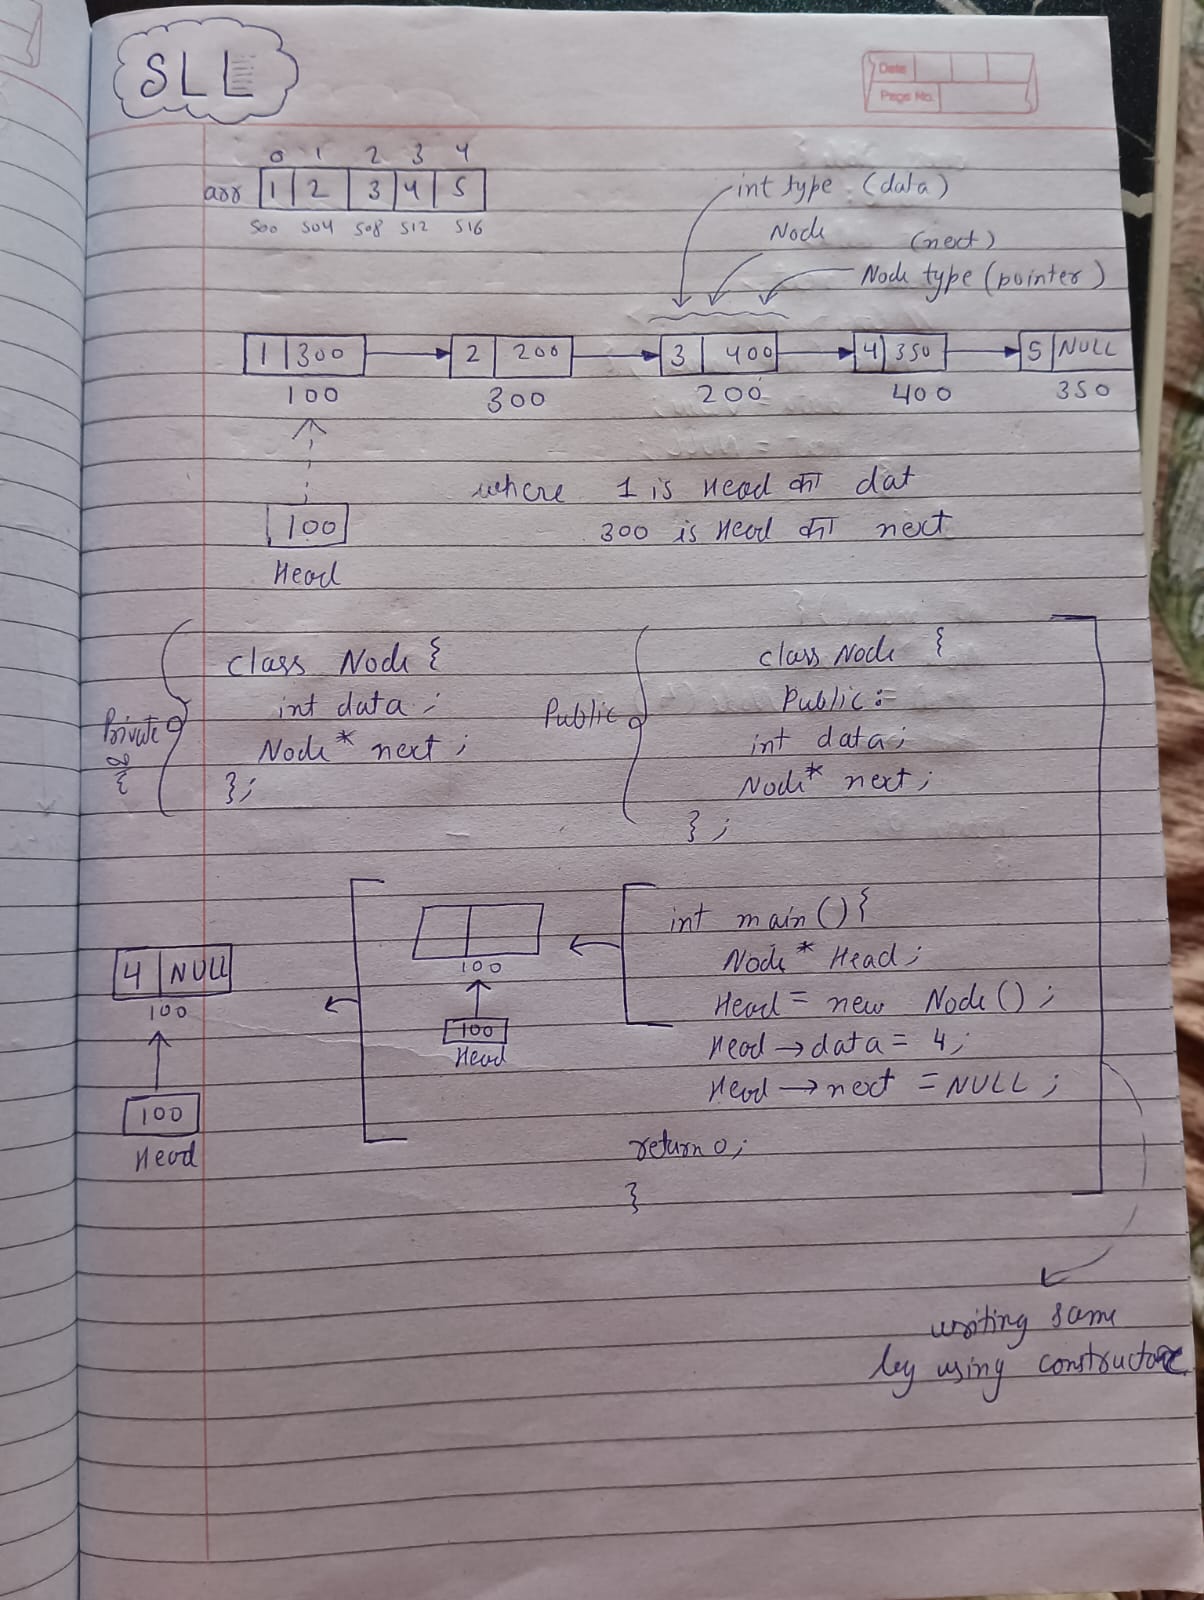 SLL
Date
Page No.
0 1 2 3 4
arr 1 2 3 4 5
500 504 508 512 516
int type (data)
Node
(next)
Node type (pointer)
1 300 2 200 3 400 4 350 5 NULL
100 300 200 400 350
100
Head
where 1 is Head का dat
300 is Head का next
Private
class Node {
int data;
Node* next;
};
Public
class Node {
Public:-
int data;
Node* next;
};
int main(){
Node* Head;
Head = new Node();
Head → data = 4;
Head → next = NULL;
return 0;
}
100
100
Head
4 NULL
100
100
Head
writing same
by using constructor